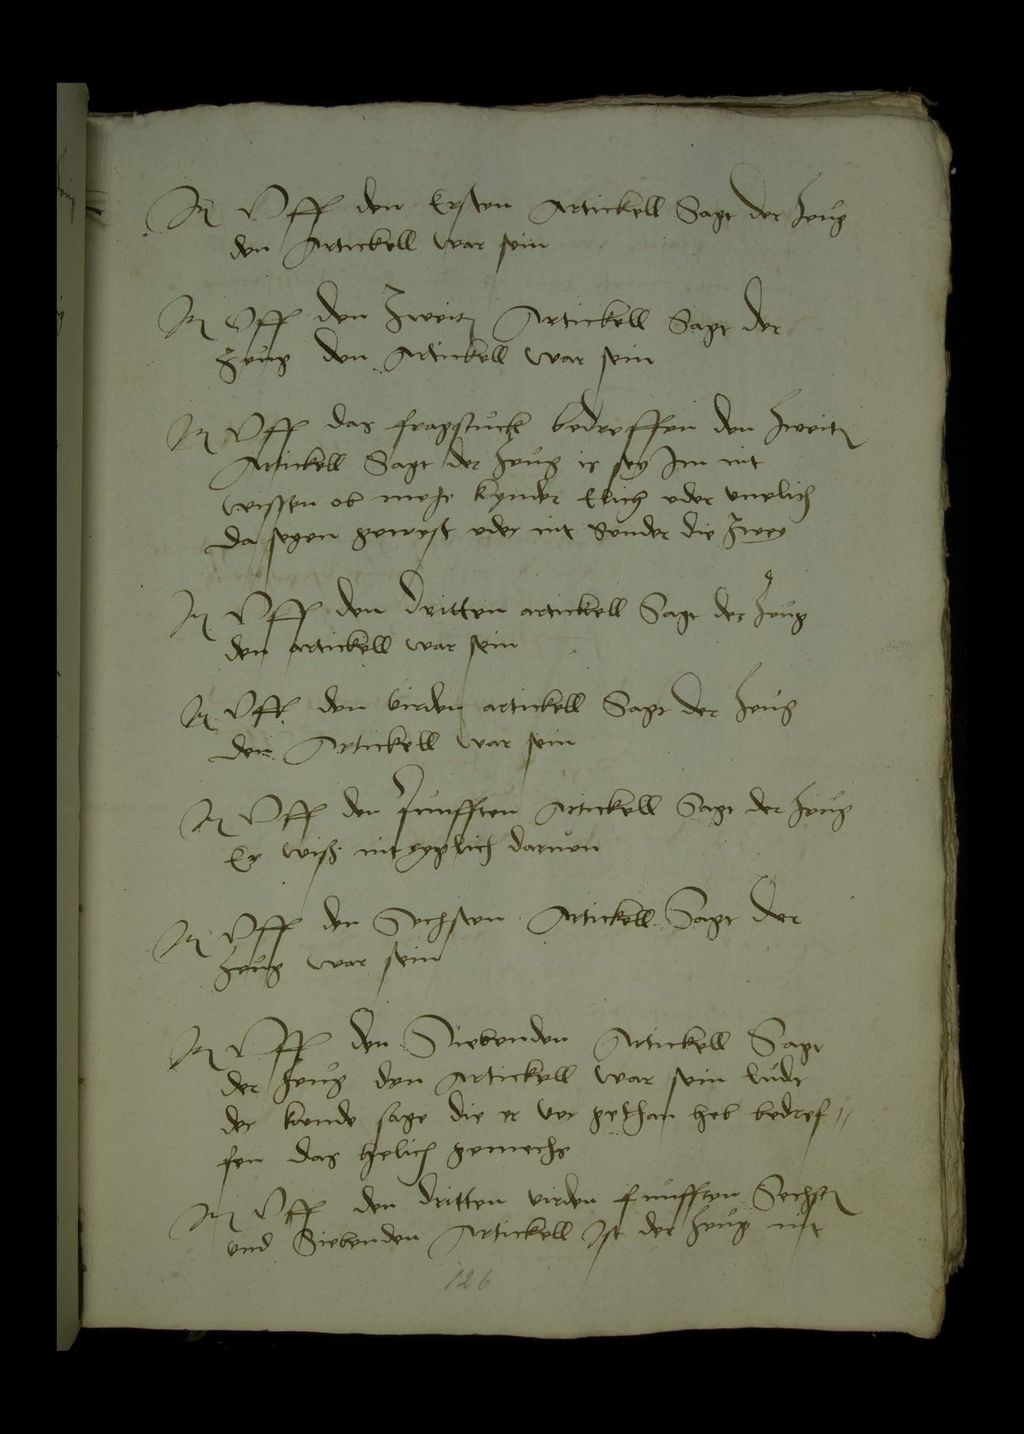 It Uff den Ersten Artickell Sagt der Zeug
den Artickell war sein
It Uff den Zweit Artickell Sagt der
Zeug den Artickell war sein
It Uff das fragstuck bedreffen den Zweit
Artickell Sagt der Zeug is sey Im nit
wissen ob mehe kynder Elich oder unelich
da seyen gewest oder nit sonder die Zwey
It Uff den dritten artickell Sagt der Zeug
den artickell war sein
It Uff den virden artickell Sagt der Zeug
den Artickell war sein
It Uff den funfften Artickell Sagt der Zeug
Er wiß nit daruon
It Uff den Sechsten Artickell Sagt der
Zeug war sein
It Uff den Siebenden Artickell Sagt
der Zeug den Artickell war sein ludt
der kunde sage die er vor gethan heb bedref-
fen das helich gemechs
It Uff den dritten virden funfften Sechst
und Siebenden Artickell Ist der Zeug nit
126